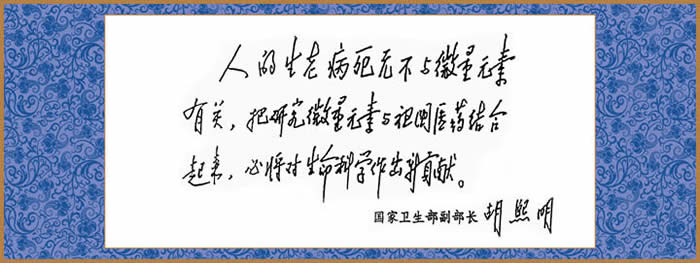 人的生老病死无不与微量元素
有关，把研究微量元素与祖国医药结合
起来，必将对生命科学作出新贡献。
国家卫生部副部长 胡熙明